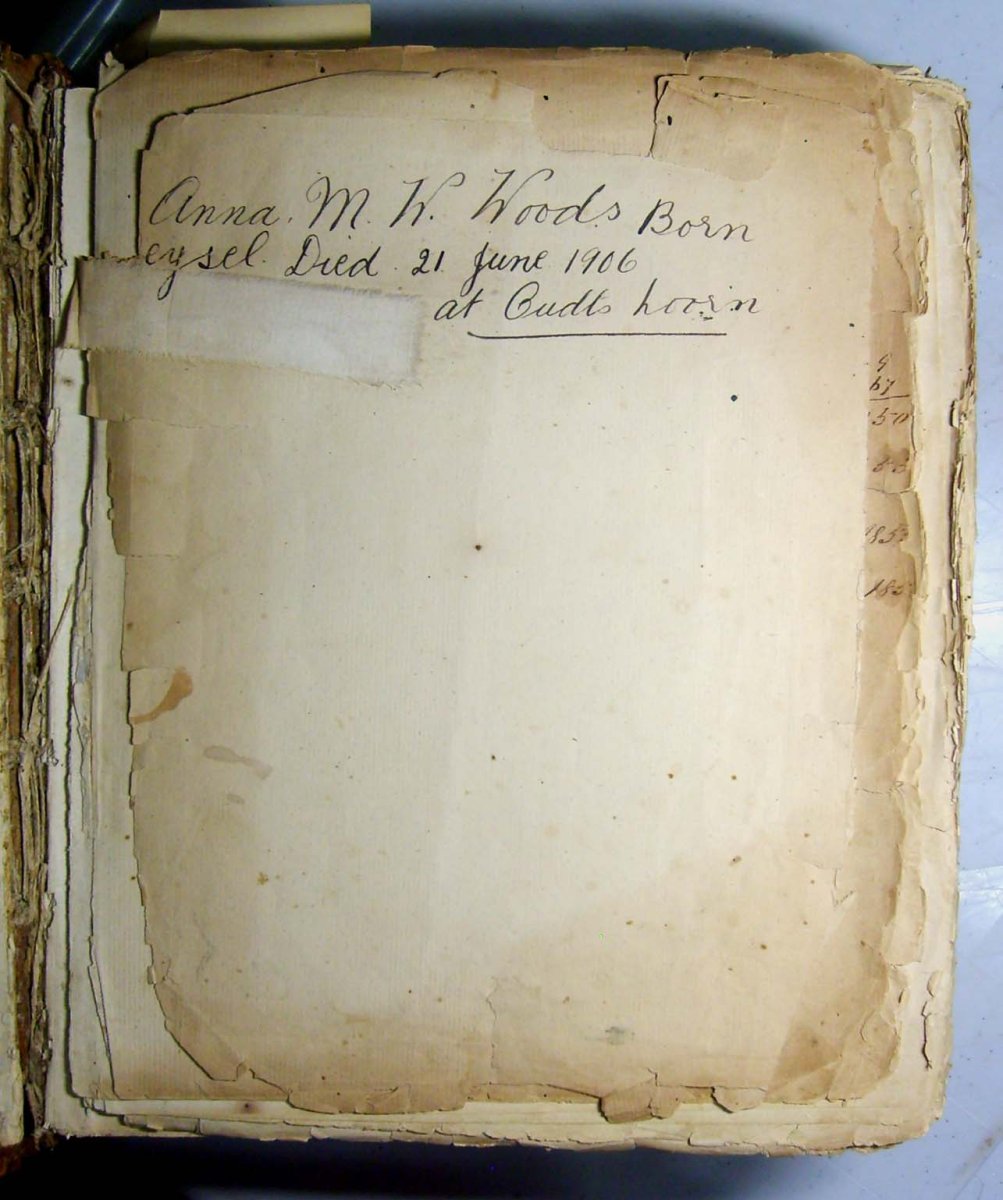 Anna. M. W. Woods Born
eysel. Died. 21. June 1906
at Oudtshoorn
9
67
50
53
185
185